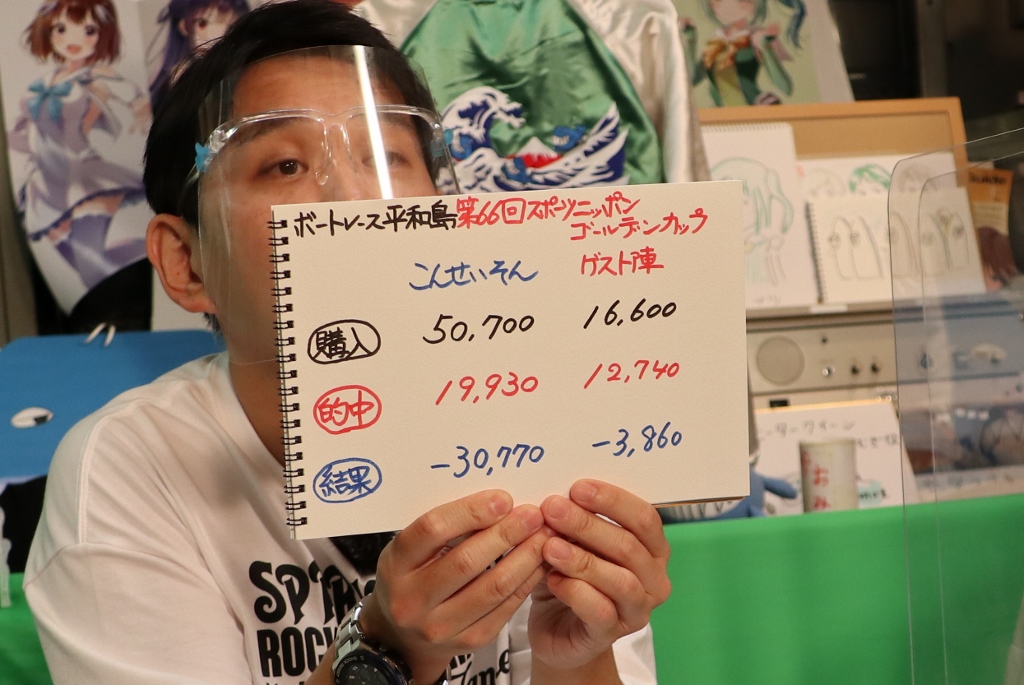 ボートレース平和島第66回スポーツニッポン
ゴールデンカップ
こんせいそん ゲスト陣
購入 50,700 16,600
的中 19,930 12,740
結果 -30,770 -3,860
おみ
ROCK